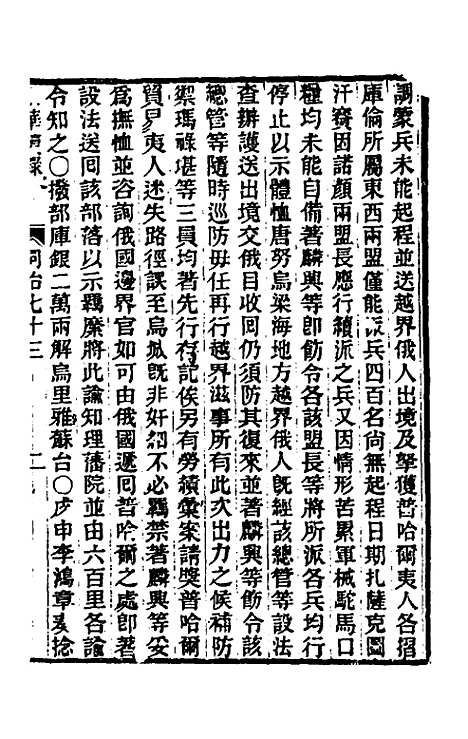 調蒙兵未能起程並送越界俄人出境及拏獲普哈爾夷人各摺
庫倫所屬東西兩盟僅能派兵四百名尚無起程日期扎薩克圖
汗賽因諾顏兩盟長應行續派之兵又因情形苦累軍械駝馬口
糧均未能自備著麟興等即飭令各該盟長等將所派各兵均行
停止以示體恤唐努烏梁海地方越界俄人既經該總管等設法
查辦護送出境交俄目收回仍須防其復來並著麟興等飭令該
總管等隨時巡防毋任再行越界滋事所有此次出力之候補防
禦瑪祿堪等三員均著先行存記俟另有勞績彙案請獎普哈爾
貿易夷人迷失路徑誤至烏城既非奸細不必羈禁著麟興等妥
為撫恤並咨詢俄國邊界官如可由俄國遞回普哈爾之處即著
設法送回該部落以示羈縻將此諭知理藩院並由六百里各諭
令知之〇撥部庫銀二萬兩解烏里雅蘇台〇戊申李鴻章奏捻
同治七十三